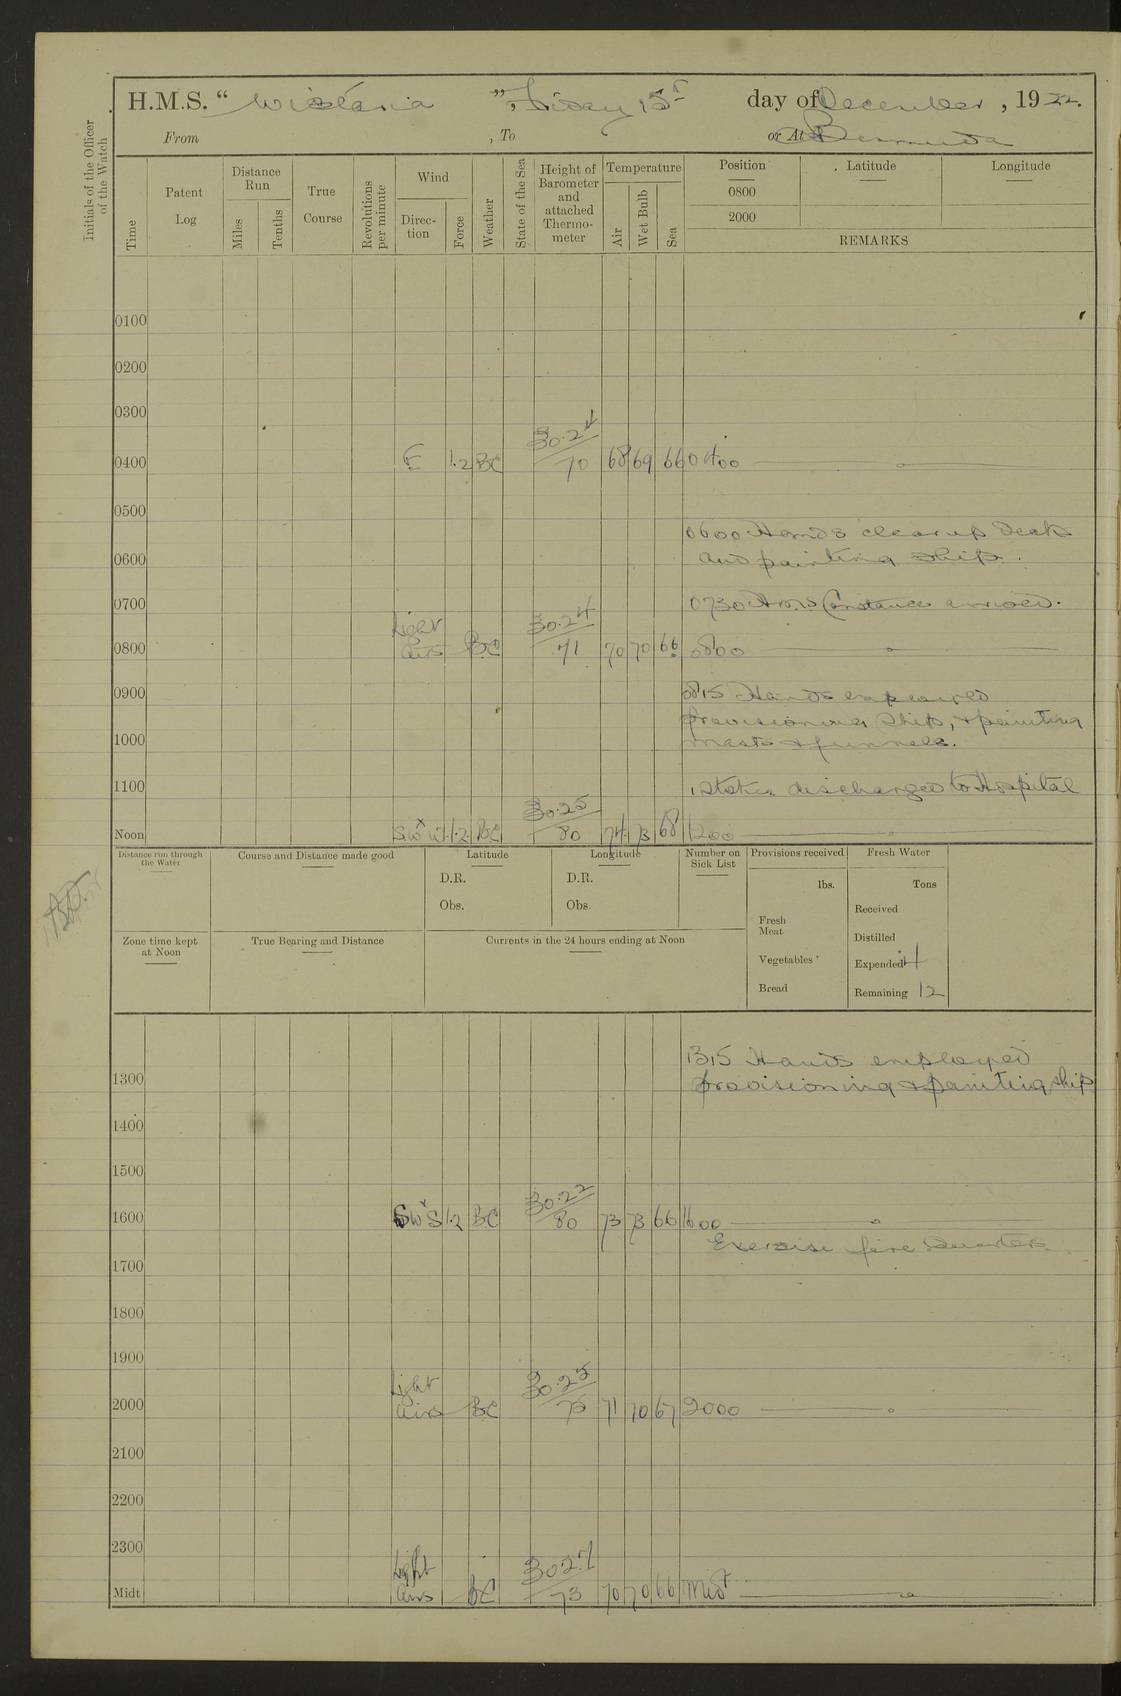 H.M.S. “ Wistaria ”, Friday 15th day of December, 1922.
From , To or At Bermuda
Initials of the Officer of the Watch
Time
Patent Log
Distance Run
Miles
Tenths
True Course
Revolutions per minute
Wind
Direction
Force
Weather
State of the Sea
Height of Barometer and attached Thermometer
Temperature
Air
Wet Bulb
Sea
Position Latitude Longitude
0800
2000
REMARKS
0100
0200
0300
0400 E 1.2 BC 30.24 70 68 69 66 0400
0500
0600 Hands clear up decks
0600 and painting ship.
0700 0730 H.M.S Constance arrived.
0800 Light airs BC 30.24 71 70 70 66 0800
0900 0815 Hands employed
provisioning ship, & painting
1000 masts & funnels.
1100 1 Stoker discharged to Hospital
Noon SWxW 1.2 BC 30.25 80 74 73 68 1200
Distance run through the Water
Course and Distance made good
Latitude
D.R.
Obs.
Longitude
D.R.
Obs.
Number on Sick List
Provisions received
lbs.
Fresh Meat
Vegetables
Bread
Fresh Water
Tons
Received
Distilled
Expended 4
Remaining 12
Zone time kept at Noon
True Bearing and Distance
Currents in the 24 hours ending at Noon
1315 Hands employed
1300 provisioning & painting ship
1400
1500
1600 SWxS 1.2 BC 30.22 80 73 73 66 1600
Exercise fire Quarters
1700
1800
1900
2000 Light airs BC 30.25 75 71 70 67 2000
2100
2200
2300
Midt Light airs BC 30.27 73 70 70 66 Midt